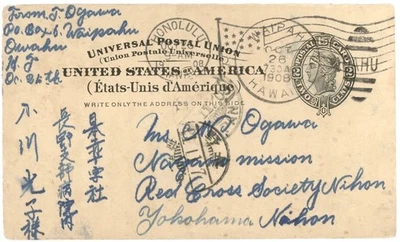 From T. Ogawa
Po. Box 6. Waipahu
Owahu
H. J
Oc. 26th
UNIVERSAL POSTAL UNION
(Union Postale Universelle)
UNITED STATES OF AMERICA
(États-Unis d'Amérique)
WRITE ONLY THE ADDRESS ON THIS SIDE
HONOLULU
WAIPAHU
OCT
26
1908
HAWAII
M. Ogawa
Nagano mission
Red Cross Society Nihon
Yokohama Nihon
日本赤十字社
長野支部病院
小川光子様